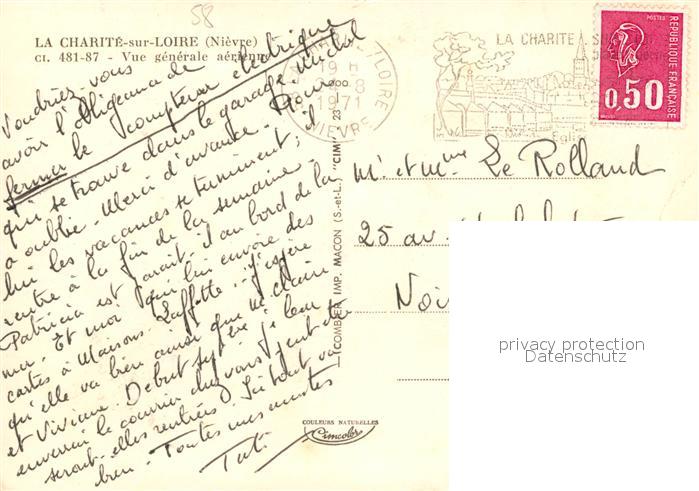 58
LA CHARITÉ-sur-LOIRE (Nièvre)
CI. 481-87 - Vue générale aérienne
Voudriez-vous
avoir l'obligeance de
fermer le compteur électrique
qui se trouve dans le garage Michel
a oublié. Merci d'avance. Pour
lui les vacances se terminent; il
rentre à la fin de la semaine.
Patricia est, paraît-il au bord de la
mer. Et moi qui lui envoie des
cartes à Maisons-Laffitte. J'espère
qu'elle va bien ainsi que M. Claire
et Viviane. Début sept je leur
enverrai le courrier chez vous peut-être
seront-elles rentrées. Ici tout va
bien - Toutes mes amitiés
LOIRE
19 H
1971
NIEVRE
LA CHARITE SUR
Eglise
POSTES
REPUBLIQUE FRANÇAISE
0,50
M. et Mme Le Rolland
25 av.
Noi
LECOMBIER IMP. MACON (S.-et-L.) "CIM"
COULEURS NATURELLES
Cimcolor
privacy protection
Datenschutz